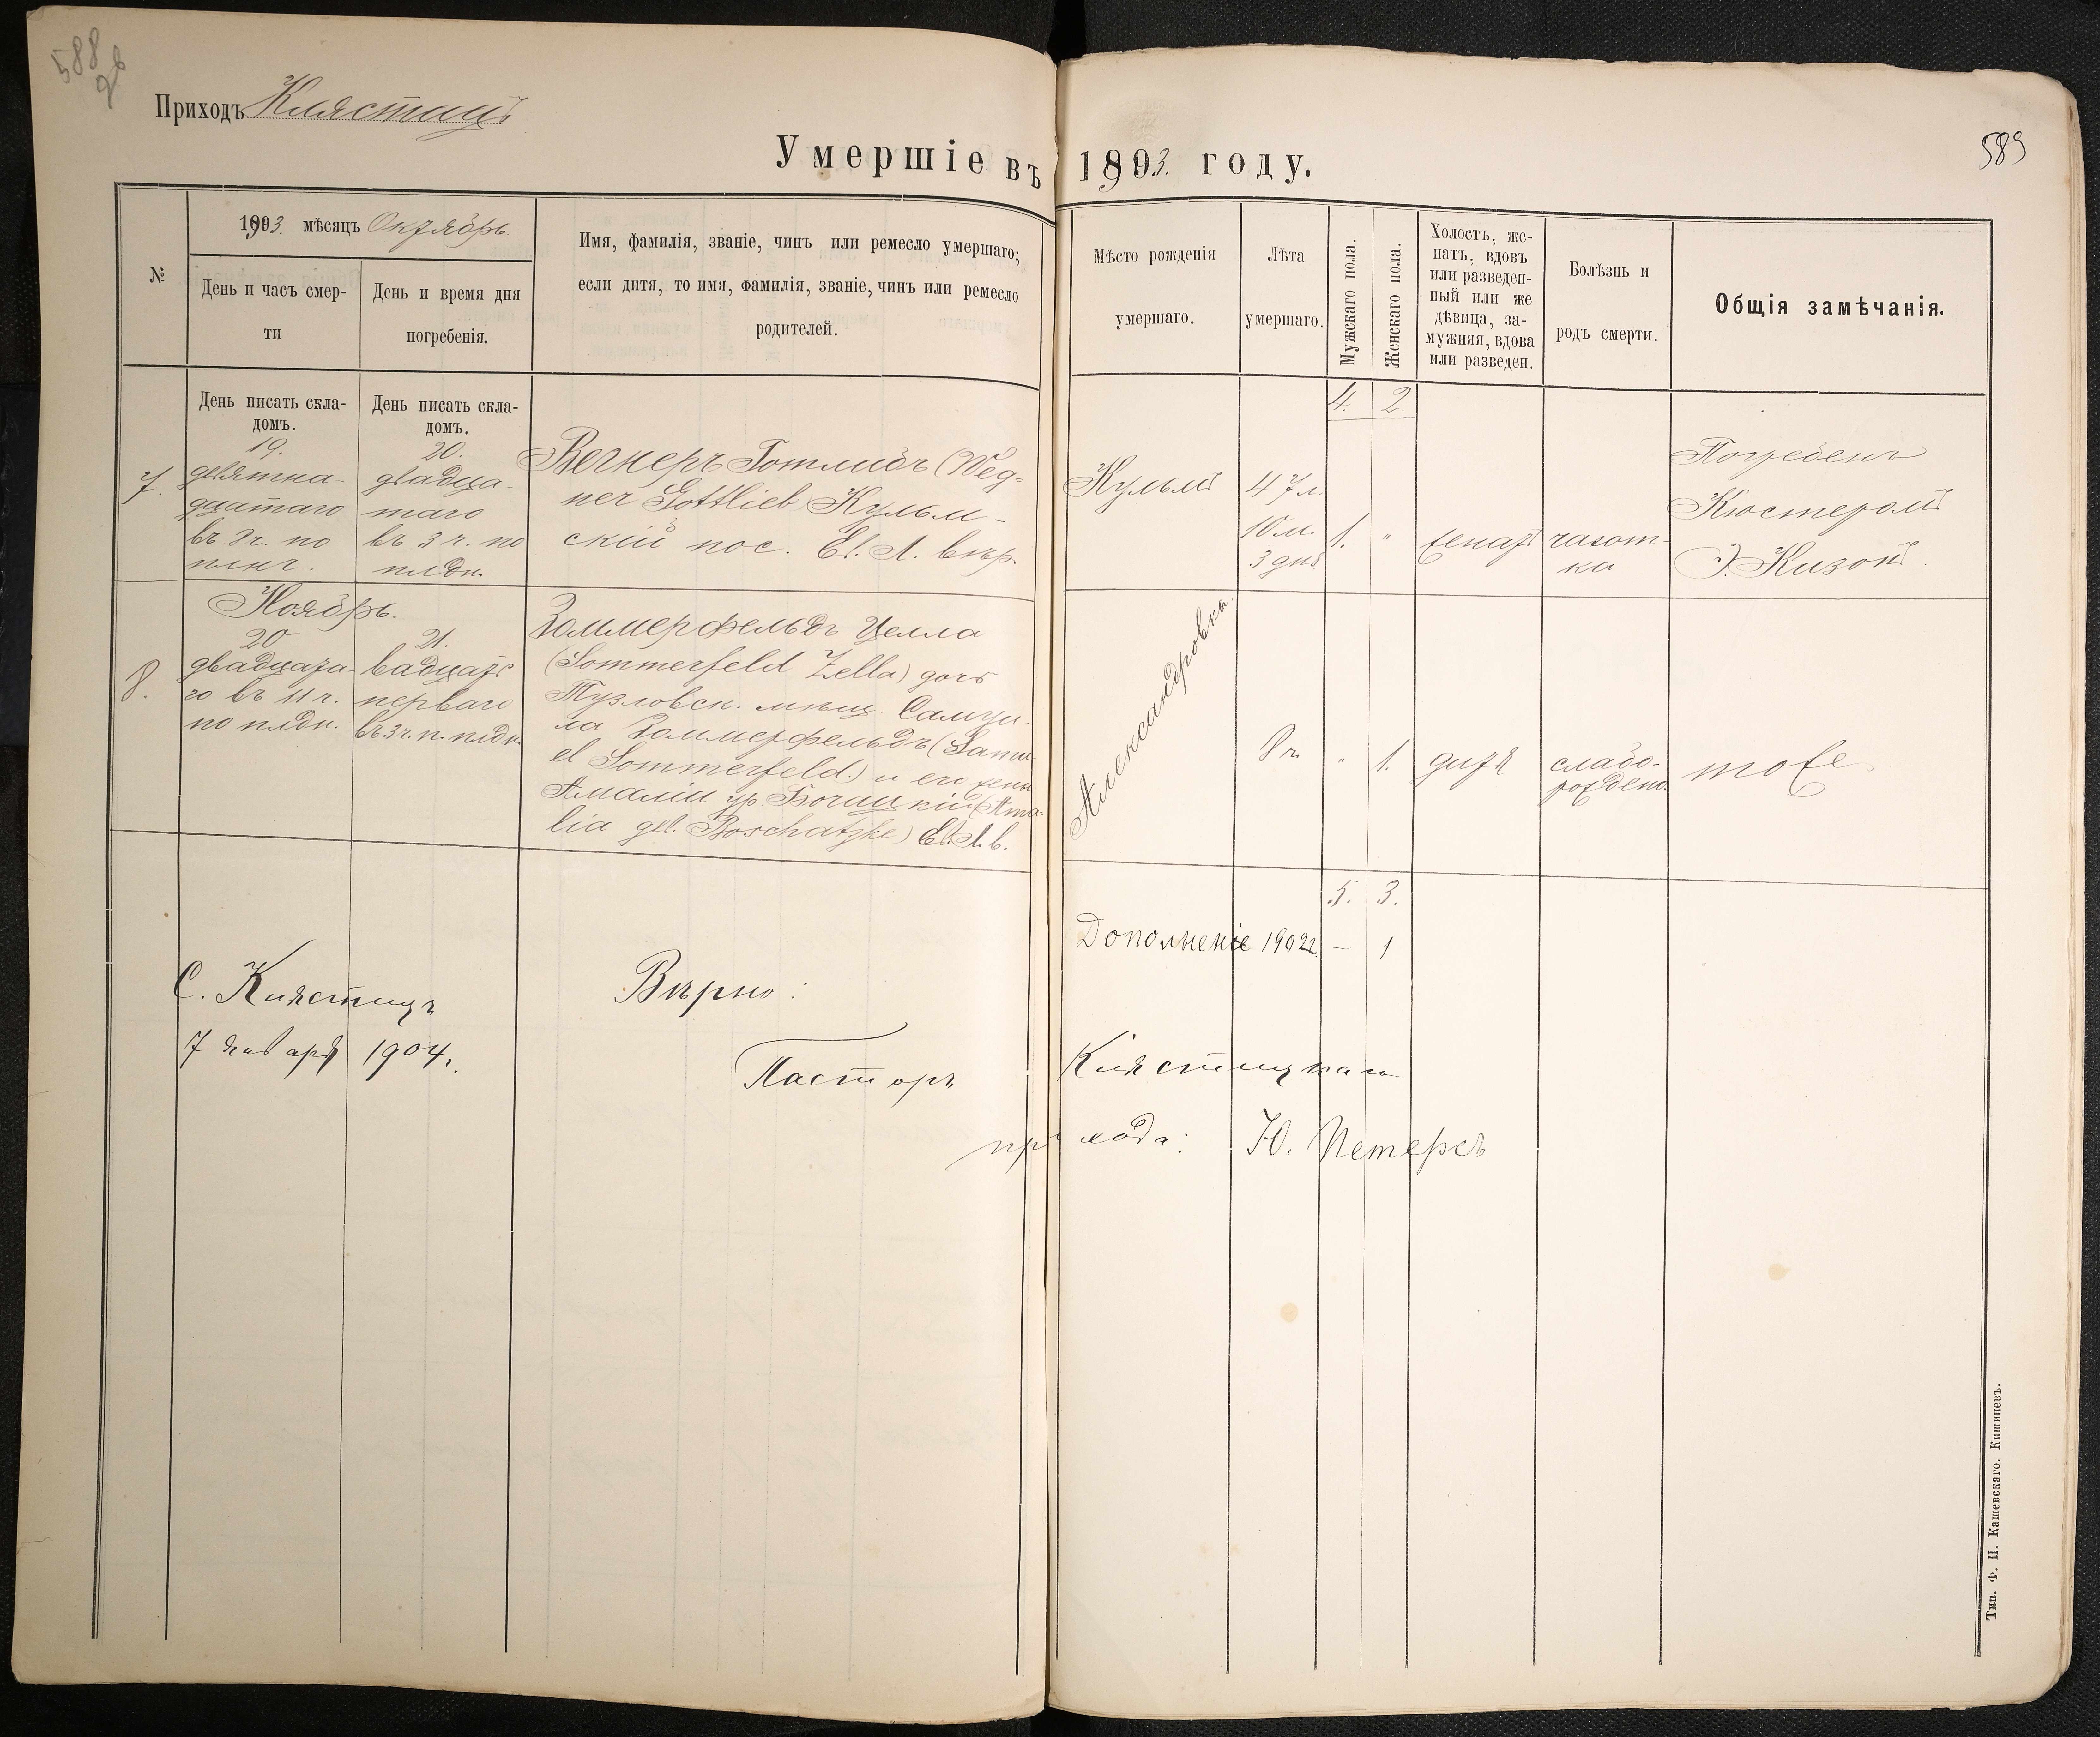 588
об
Приходъ Клястицъ
Умершіе въ 1903. году.
589
№
1903. мѣсяцъ Октябрь
День и часъ смер-
ти
День и время дня
погребенія.
Имя, фамилія, званіе, чинъ или ремесло умершаго;
если дитя, то имя, фамилія, званіе, чинъ или ремесло
родителей.
Мѣсто рожденія
умершаго.
Лѣта
умершаго.
Мужскаго пола.
Женскаго пола.
Холостъ, же-
натъ, вдовъ
или разведен-
ный или же
дѣвица, за-
мужняя, вдова
или разведен.
Болѣзнь и
родъ смерти.
Общія замѣчанія.
День писать скла-
домъ.
День писать скла-
домъ.
4. 2.
7.
19.
девятна-
дцатаго
въ 2ч. по
20.
двадца-
таго
въ 3 ч. по
плдн.
Вегнеръ Готлибъ (Weg=
ner Gottlieb) Кульм-
скій пос. Ев. Л. вѣр.
Кульмъ
47 л.
10 м.
3 дня
1.
"
женатъ
чахот-
ка
Погребенъ
Кюстеромъ
Э. Кизонъ
Ноябрь.
8.
20
двадцата-
го въ 11 ч.
по плдн.
21.
вадцать
перваго
въ 3 ч. п. плдн.
Зоммерфельдъ Целла
(Sommerfeld Zella) дочь
Тузловск. мѣщ. Самуи-
ла Зоммерфельдъ (Samu-
el Sommerfeld.) и его жены
Амаліи ур. Богацкій (Ama-
lia geb. Boschatzke) Ев. Л. в.
Александровка.
8 ч.
"
1.
дитя
слабо-
рожденн.
тоже
5. 3.
Дополненіе 1902г. — 1
С. Клястицъ
7 января 1904г.
Вѣрно:
Пасторъ Клястицкаго
прихода: Ю. Петерсъ
Тип. Ф. П. Кашевскаго. Кишиневъ.